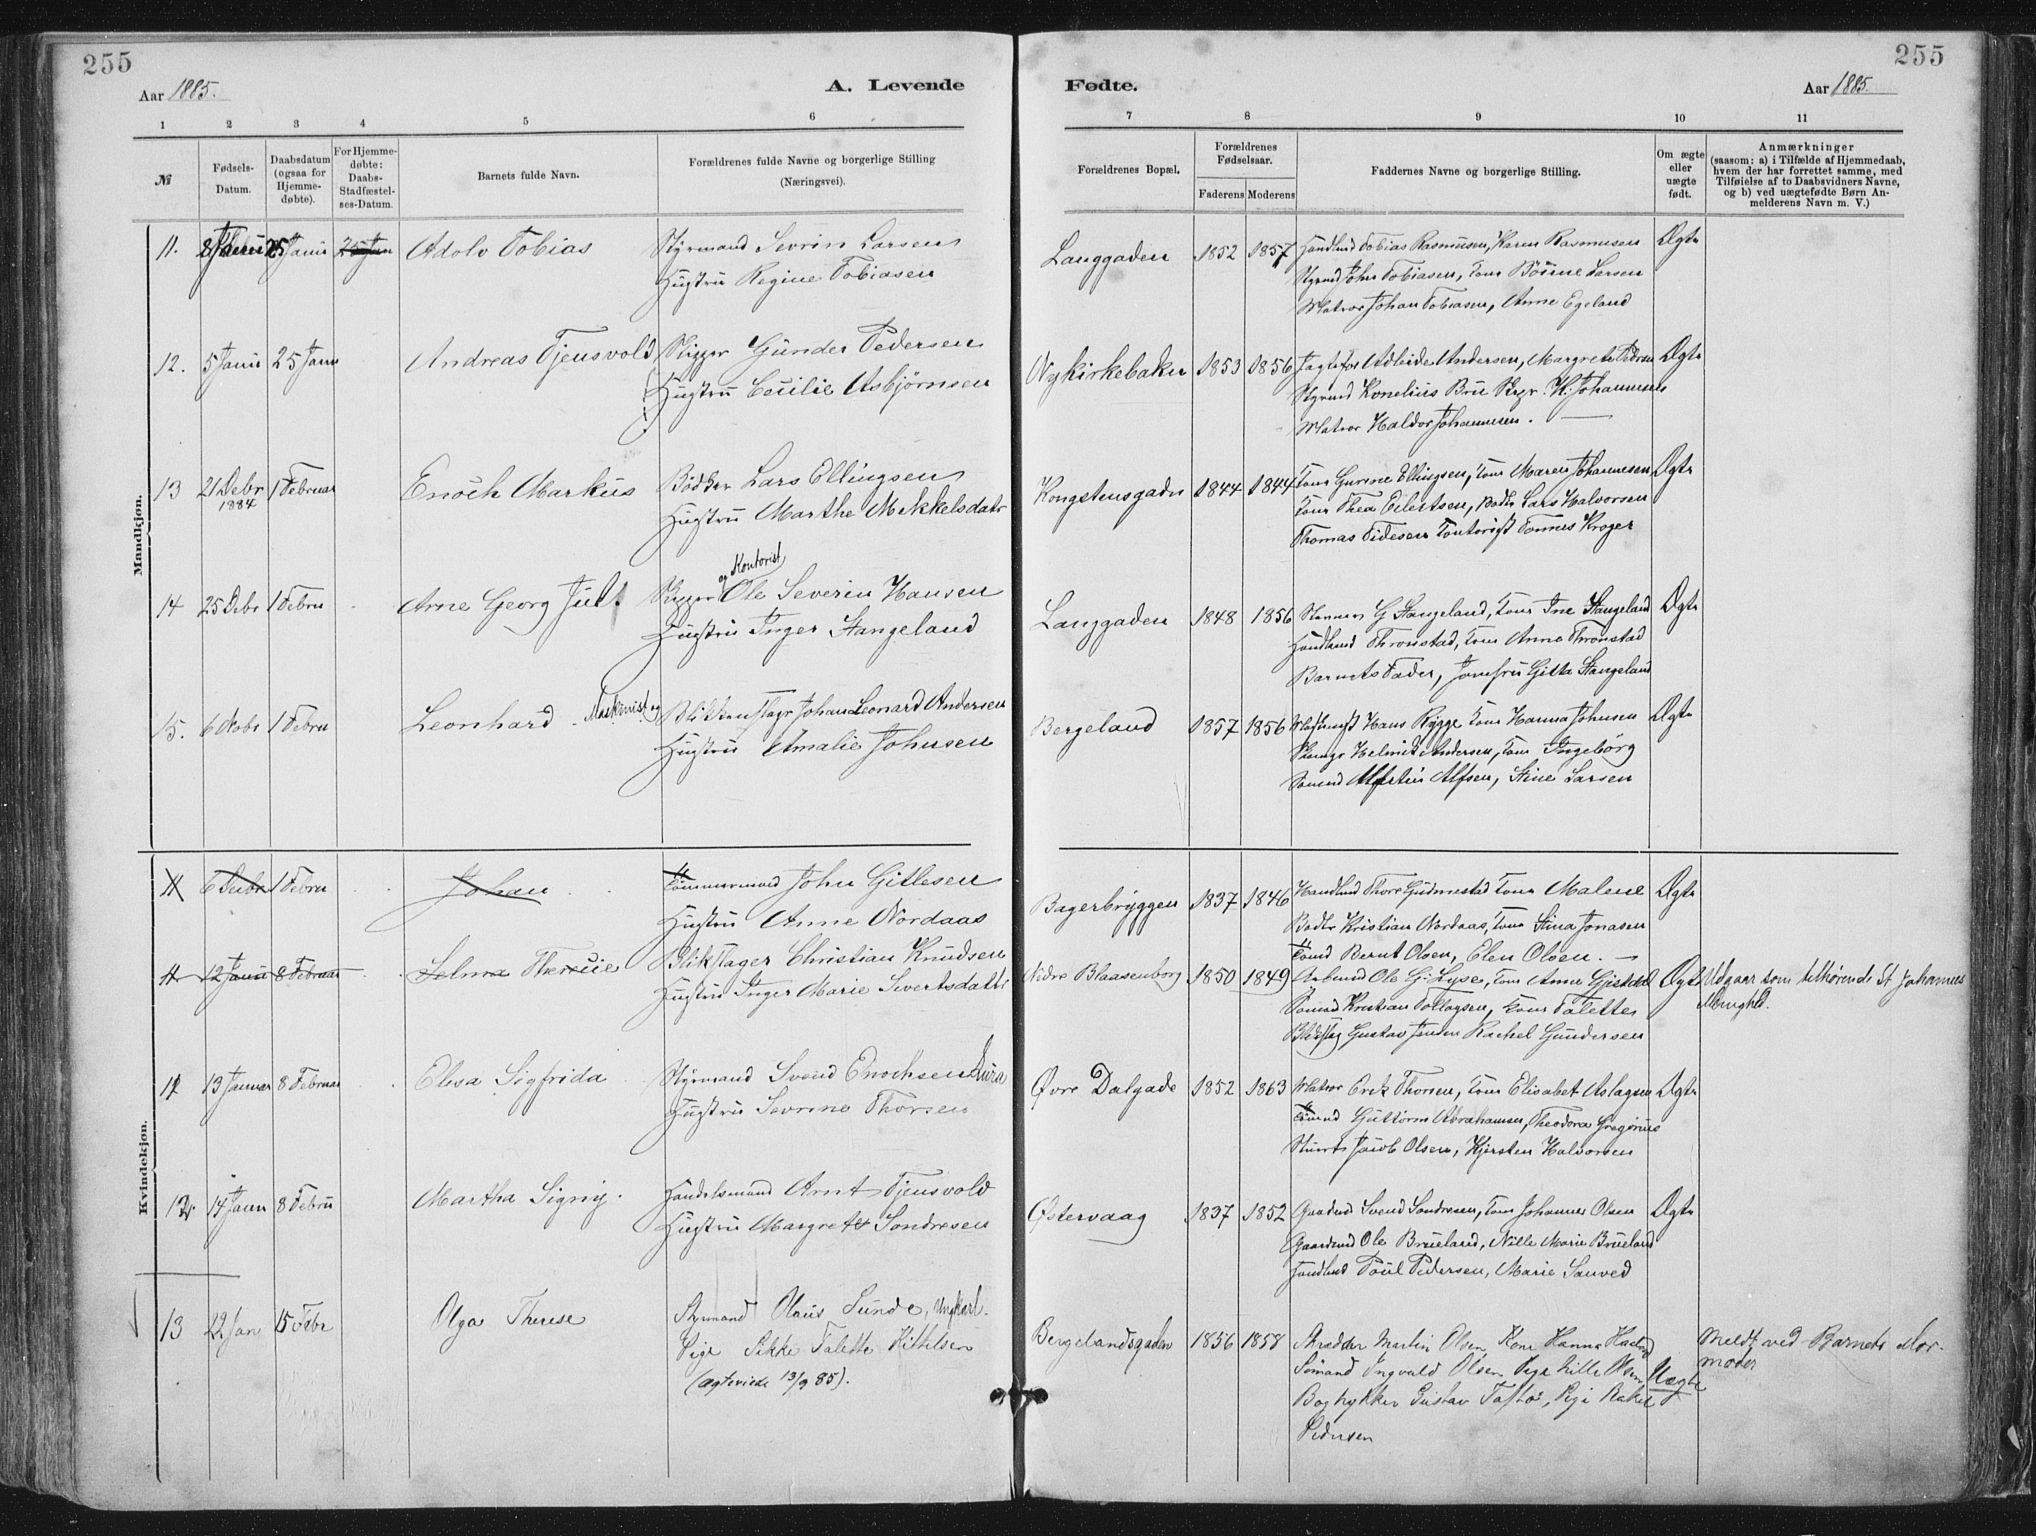 255
255
Aar 1885.
A. Levende
Fødte.
Aar 1885.
1 2 3 4 5 6
7 8 9 10 11
№
Fødsels-
Datum.
Daabsdatum
(ogsaa for
Hjemme-
døbte).
For Hjemme-
døbte:
Daabs-
Stadfæstel-
ses-Datum.
Barnets fulde Navn.
Forældrenes fulde Navne og borgerlige Stilling
(Næringsvei).
Forældrenes Bopæl.
Forældrenes
Fødselsaar.
Faderens Moderens
Faddernes Navne og borgerlige Stilling.
Om ægte
eller
uægte
født.
Anmærkninger
(saasom: a) i Tilfælde af Hjemmedaab,
hvem der har forrettet samme, med
Tilføielse af to Daabsvidners Navne,
og b) ved uægtefødte Børn An-
melderens Navn m. V.)
Mandkjøn.
11. 8 Janu 25 Janu 25 Jan Adolv Tobias Styrmand Sevrin Larsen
Hustru Regine Tobiasen
Langgaden 1852 1857 Handlmd Tobias Rasmusen, Karen Rasmusen Ægte
Styrmd John Tobiasen, Larsen
Matros Johan Tobiasen, Anne Egeland
12. 5 Janu 25 Janu Andreas Tjensvold Skipper Gunder Pedersen
Hustru Cecilie Asbjørnsen
Nykirkebaken 1853 1856 Adleide Andersen, Margrete Pedersen Ægte
Styrmd Kornelius Bru Skpr. H. Johannesen
Matros Haldor Johannesen.
13 21 Debr 1 Februar Enoch Markus Bødker Lars Ellingsen
1884
Hustru Marthe Mikkelsdatr
Kongstensgaden 1844 1844 Kone Gurine Ellingsen, Kone Maren Johannesen Ægte
Kone Thea Eilertsen, Bødkr Lars Halvorsen
Thomas Tidesen Kontorist Tonnes Kroger
14 25 Debr 1 Febru Arne Georg Juul Skipper og Kontorist Ole Severin Hansen
Hustru Inger Stangeland
Langgaden 1848 1856 G Stangeland, Kone Ine Stangeland Ægte
Handlmd Thronstad, Kone Anne Thronstad
Barnets Fader, Jomfru Gitta Stangeland
15. 6 1 Febru Leonhard Maskinist og Blikkenslagr Johan Leonard Andersen
Hustru Amalie Johnsen
Bergeland 1857 1856 Maskinist Hans Rygge Kone Hanna Johnsen Ægte
Helmick Andersen, Kone Ingeborg
Sømnd Martin Alfsen, Stine Larsen
Kvindekjøn.
11 6 Debr 1 Febru Johan Tømmermand John Gitlesen
Hustru Anne Nordaas
Bagerbryggen 1837 1846 Handlmd Thore Gudmestad Kone Malene Ægte
Bødkr Kristian Nordaas, Kone Stina Jonasen
Tømd Bernt Olsen, Elen Olsen.
11 12 Janu 8 Februar Selma Therecie Blikslager Christian Knudsen
Hustru Inger Marie Sivertsdattr
Nedre Blaasenborg 1850 1849 Arbmd Ole G. Lyse, Kone Anne Gjesdal Ægte Udgaar som tilhørende St Johannes
Menighed.
Sømnd Kristian Tollagsen, Kone Talette
Blikslag Gustav Jensen Rachel Gundersen
12 13 Januar 8 Februar Elisa Sigfrida Styrmand Svend Enochsen Aura
Hustru Sevrine Thorsen
Øvre Dalgade 1852 1863 Matros Erik Thorsen, Kone Elisabet Aslagsen Ægte
Tømd Guttorm Abrahamsen, Theodora Gregorius
Stuert Jacob Olsen, Kjersten Halvorsen
12 14 Janu 8 Febru Martha Signy. Handelsmand Arnt Tjensvold
Hustru Margrete Sondresen
Østervaag 1837 1852 Gaardmd Svend Sondresen, Kone Johanne Olsen Ægte
Gaardmd Ole Brueland, Nille Marie Brueland
Handlmd Poul Pedersen, Marie Sanved
13 22. Jan 15 Febr Olga Therese Styrmand Olaus Sunde, Ungkarl.
Pige Sikke Talette Kittilsen
(ægteviede 13/9 85).
Bergelandsgaden 1856 1858 Skrædder Martin Olsen Kone Hanna Uægte Meldt ved Barnets Mor-
moder
Sømand Ingvald Olsen Pige Nille Olsen
Bogtrykker Gustav Tastø, Pige Rakel
Pedersen